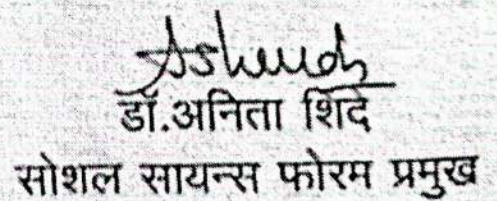 डॉ.अनिता शिंदे
सोशल सायन्स फोरम प्रमुख